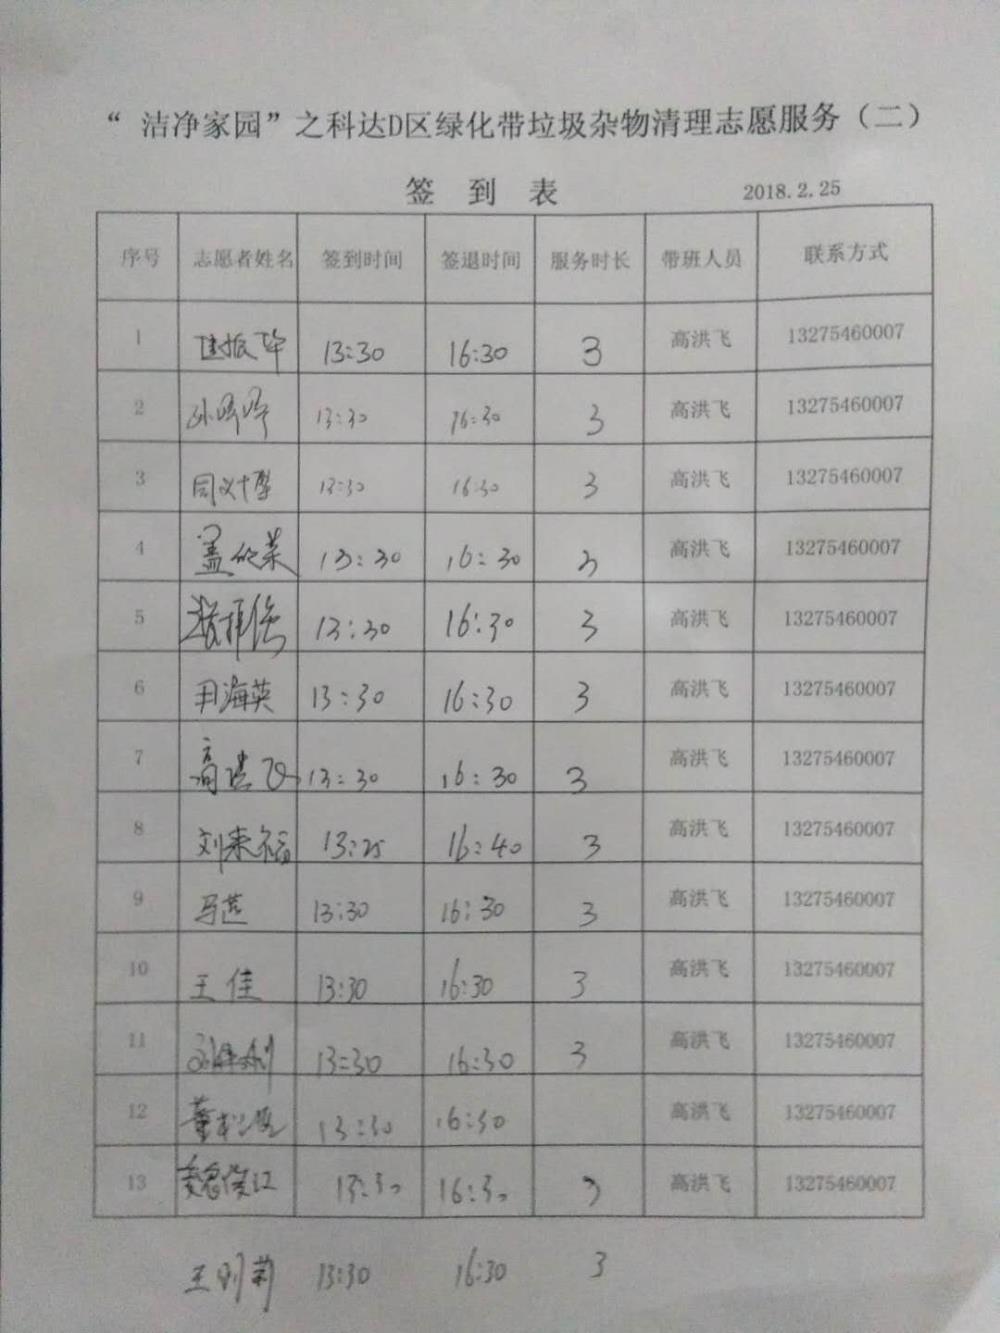 “ 洁净家园”之科达D区绿化带垃圾杂物清理志愿服务（二）
签 到 表 2018.2.25
序号 志愿者姓名 签到时间 签退时间 服务时长 带班人员 联系方式
1 13:30 16:30 3 高洪飞 13275460007
2 13:30 16:30 3 高洪飞 13275460007
3 13:30 16:30 3 高洪飞 13275460007
4 13:30 16:30 3 高洪飞 13275460007
5 13:30 16:30 3 高洪飞 13275460007
6 田海英 13:30 16:30 3 高洪飞 13275460007
7 高洪飞 13:30 16:30 3 高洪飞 13275460007
8 刘来福 13:25 16:40 3 高洪飞 13275460007
9 马莲 13:30 16:30 3 高洪飞 13275460007
10 王佳 13:30 16:30 3 高洪飞 13275460007
11 13:30 16:30 3 高洪飞 13275460007
12 13:30 16:30 高洪飞 13275460007
13 魏俊江 13:30 16:30 3 高洪飞 13275460007
王刚莉 13:30 16:30 3